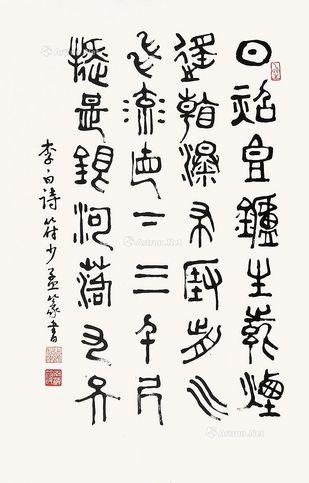 日照香爐生紫煙
遙看瀑布掛前川
飛流直下三千尺
疑是銀河落九天
李白詩符少孟篆書
Artron.Net